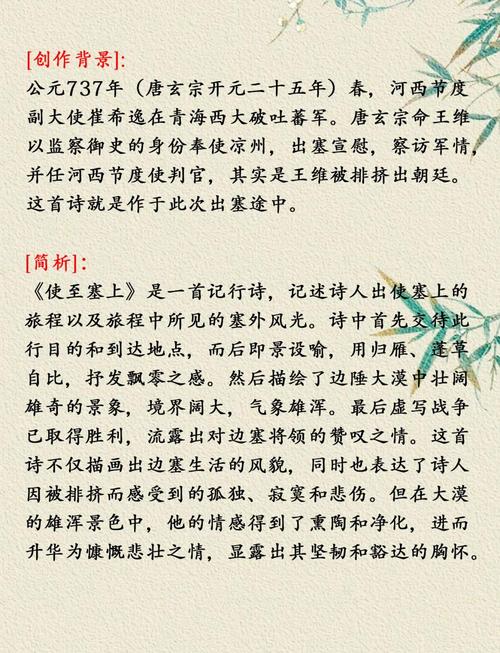 [创作背景]:
公元737年（唐玄宗开元二十五年）春，河西节度
副大使崔希逸在青海西大破吐蕃军。唐玄宗命王维
以监察御史的身份奉使凉州，出塞宣慰，察访军情，
并任河西节度使判官，其实是王维被排挤出朝廷。
这首诗就是作于此次出塞途中。
[简析]:
《使至塞上》是一首记行诗，记述诗人出使塞上的
旅程以及旅程中所见的塞外风光。诗中首先交待此
行目的和到达地点，而后即景设喻，用归雁、蓬草
自比，抒发飘零之感。然后描绘了边陲大漠中壮阔
雄奇的景象，境界阔大，气象雄浑。最后虚写战争
已取得胜利，流露出对边塞将领的赞叹之情。这首
诗不仅描画出边塞生活的风貌，同时也表达了诗人
因被排挤而感受到的孤独、寂寞和悲伤。但在大漠
的雄浑景色中，他的情感得到了熏陶和净化，进而
升华为慷慨悲壮之情，显露出其坚韧和豁达的胸怀。